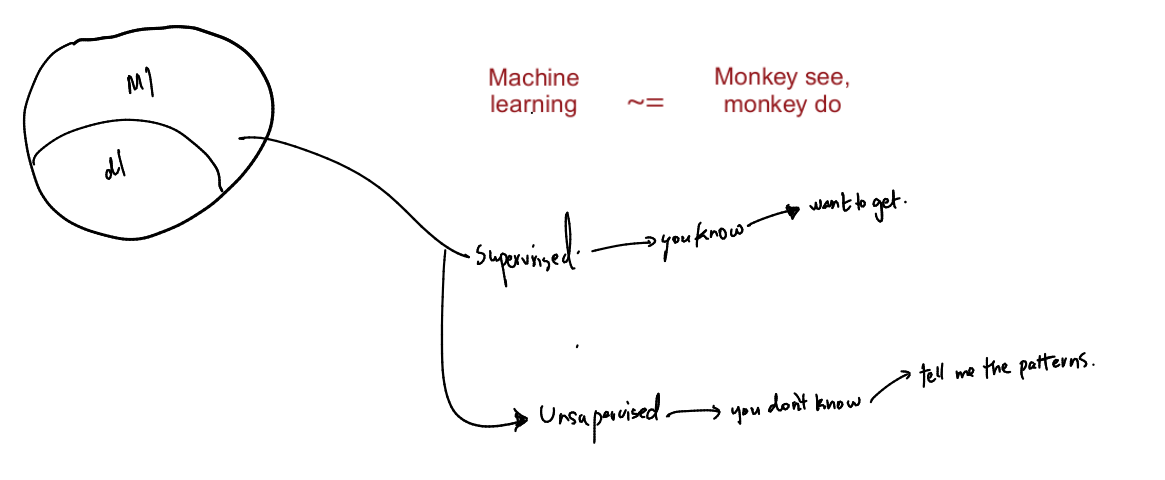 Ml
dl
Machine learning ~= Monkey see, monkey do
Supervised. you know want to get.
Unsapervised you don't know tell me the patterns.